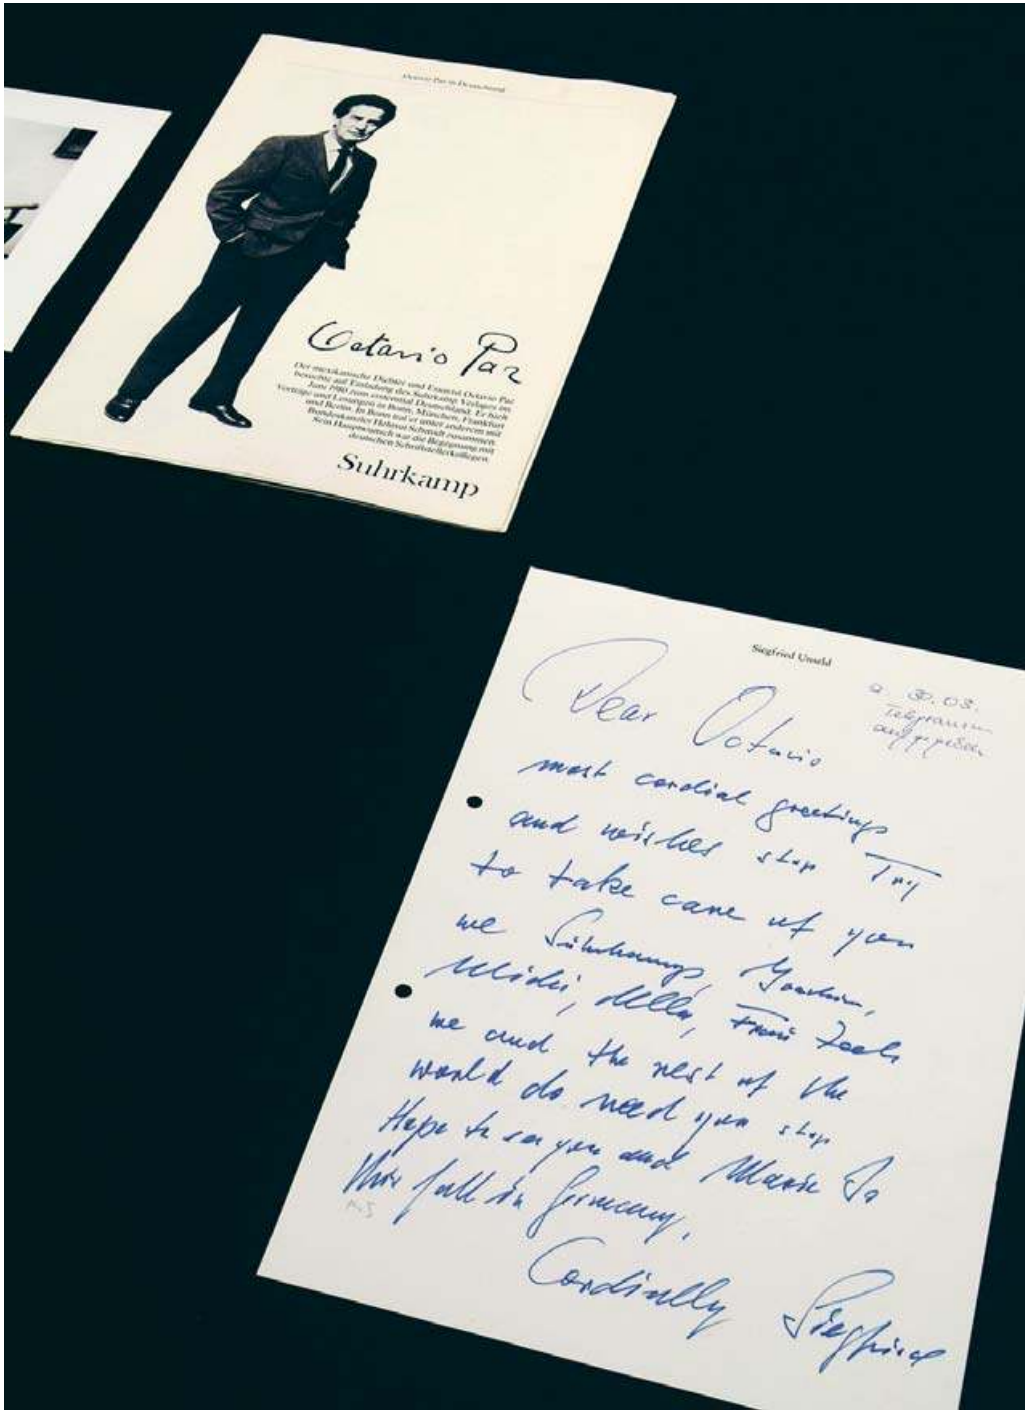 Octavio Paz in Deutschland
Octavio Paz
Der mexikanische Dichter und Essayist Octavio Paz
besuchte auf Einladung des Suhrkamp Verlages im
Juni 1980 zum erstenmal Deutschland. Er hielt
Vorträge und Lesungen in Bonn, München, Frankfurt
und Berlin. In Bonn traf er unter anderem mit
Bundeskanzler Helmut Schmidt zusammen.
Sein Hauptwunsch war die Begegnung mit
deutschen Schriftstellerkollegen.
Suhrkamp
Siegfried Unseld
30.03.
Telegramm
aufgegeben
Dear Octavio
most cordial greetings
and wishes stop Try
to take care of you
we Suhrkamps, Joachim,
Michi,
we and the rest of the
world do need you stop
Hope to see you and Marie Jo
this fall in Germany,
Cordially Siegfried